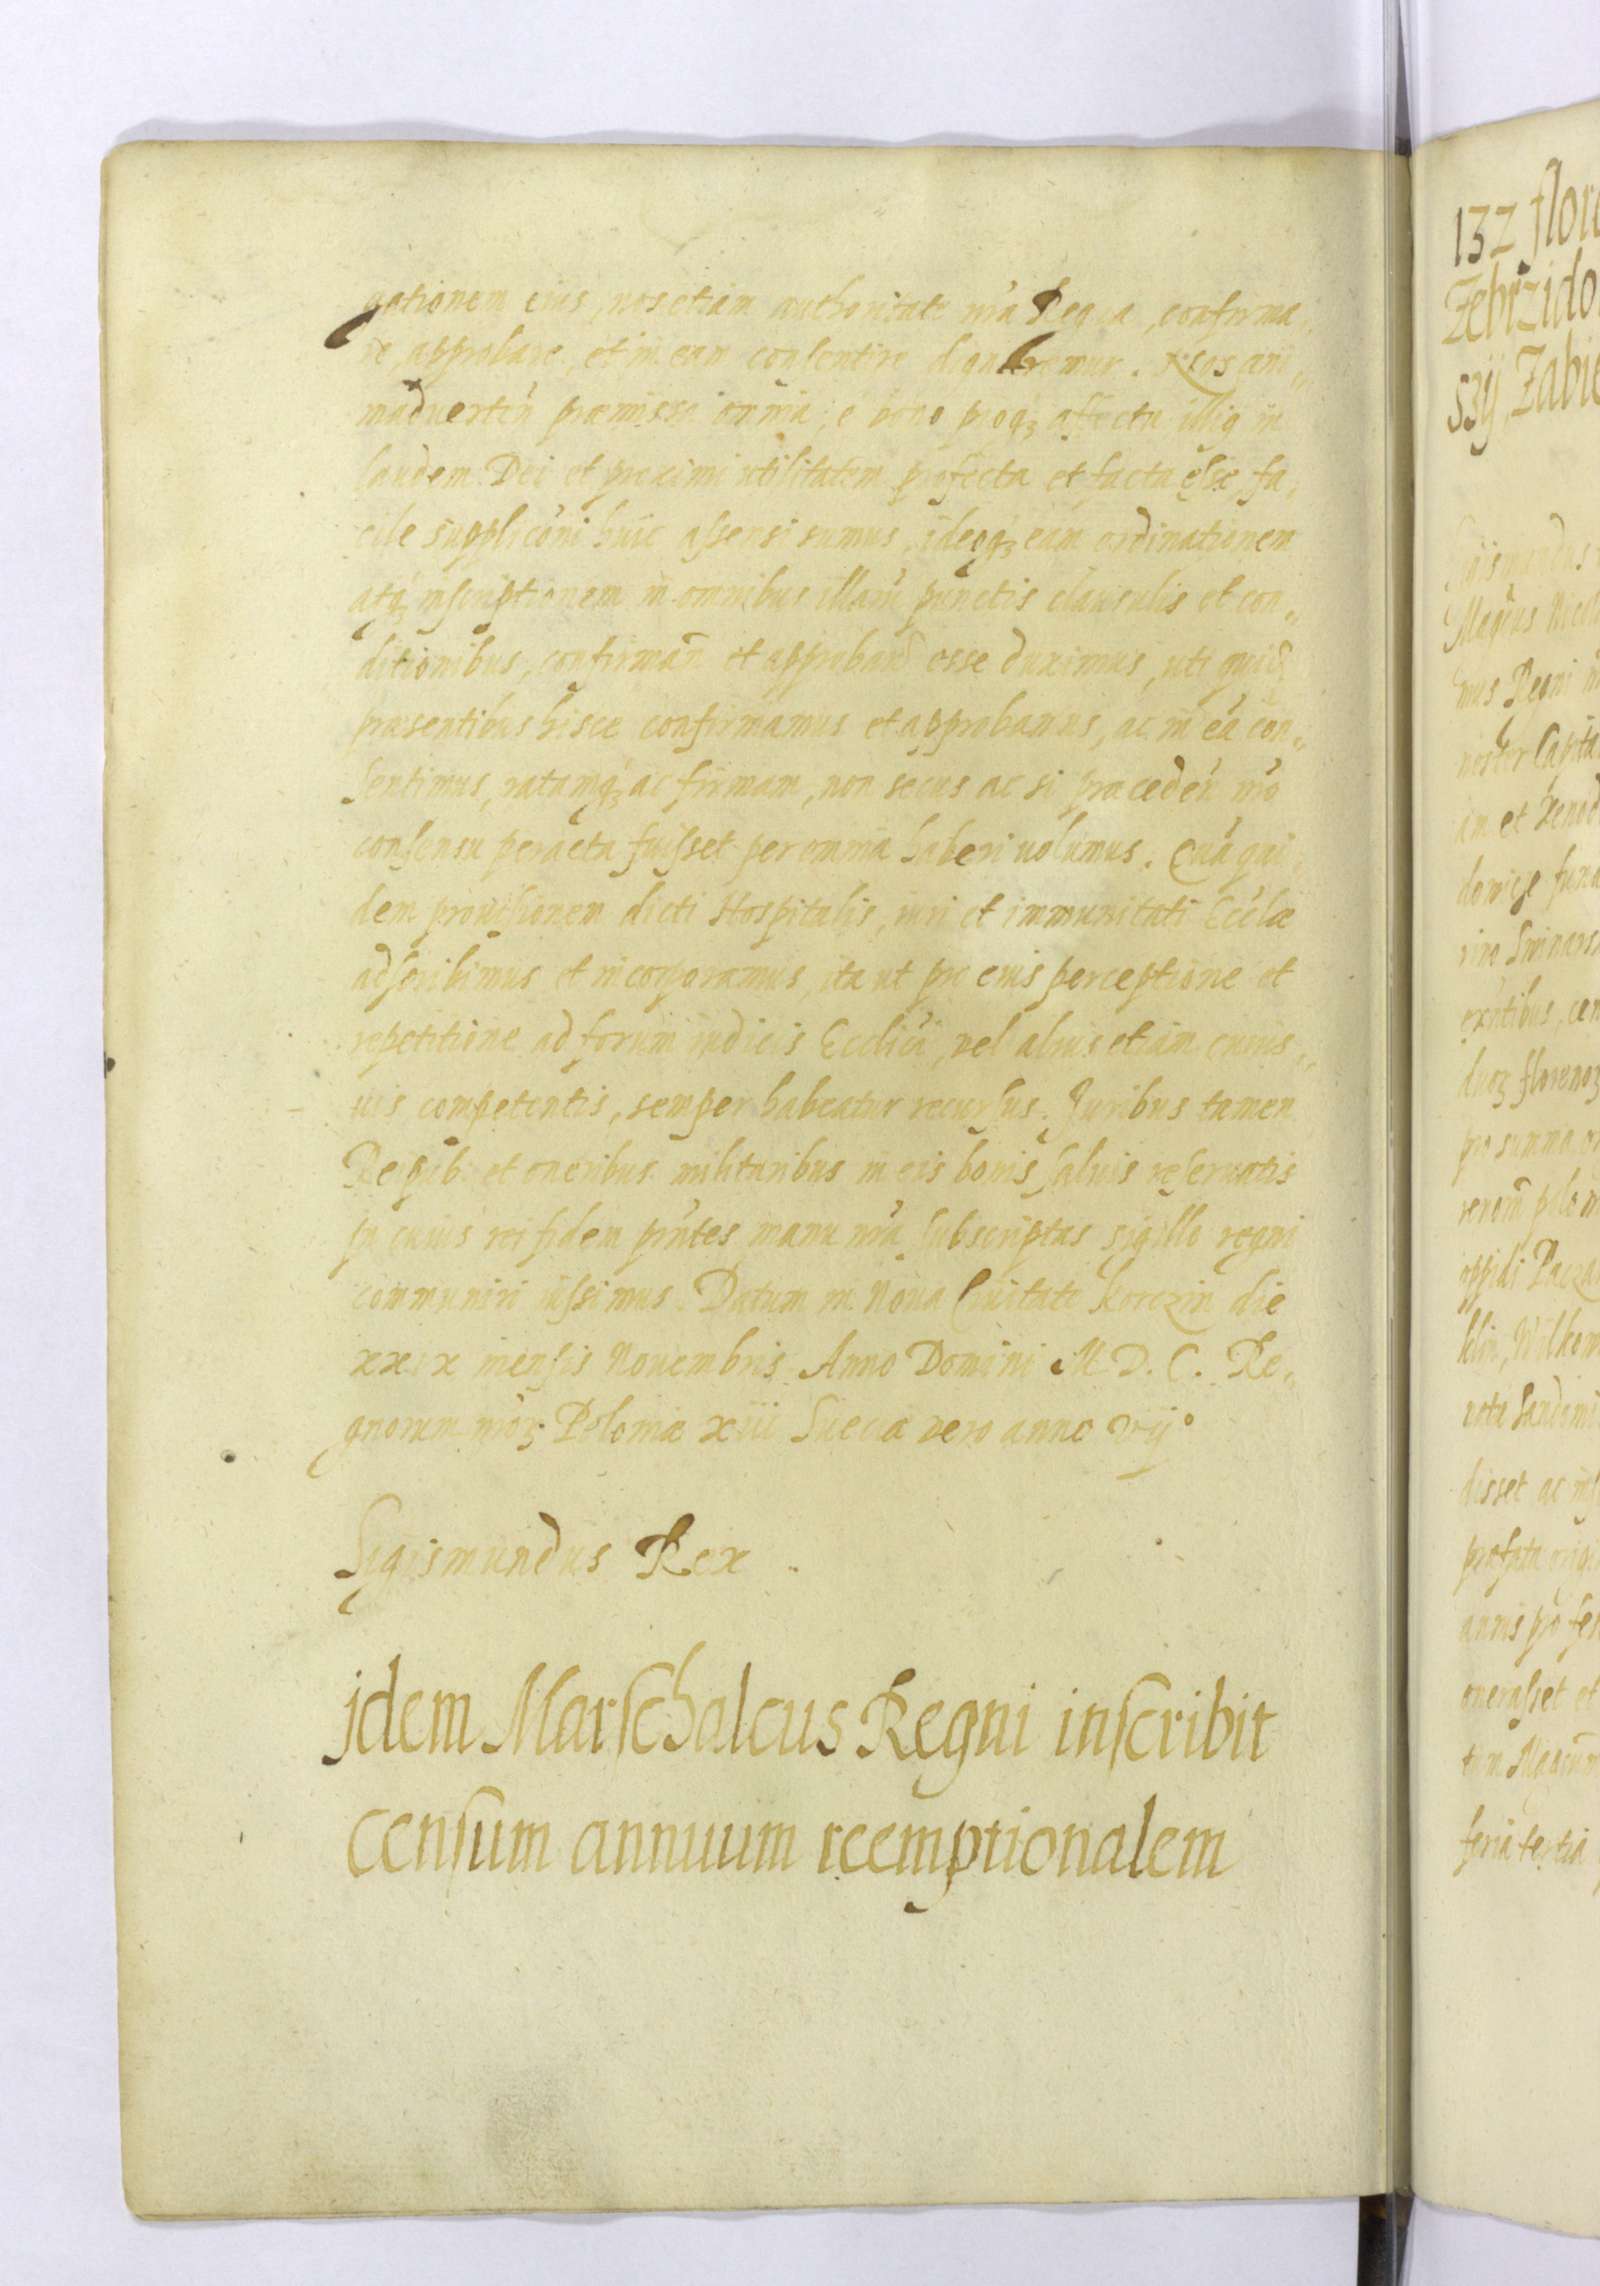 gationem eius, nos etiam authoritate nrã Regia, confirma,,
re, approbare, et in eam consentire dignaremur. Nos ani,,
maduerteñ præmissa omnia, e bono pioq3 affectu illiq in
laudem Dei et proximi utilitatem profecta et facta esse, fa,,
cile supplicõni huic assensi sumus, ideoq3 eãm ordinationem
atq3 inscriptionem in omnibus illarũ punctis clausulis et con,,
ditionibus, confirmañ et approband esse duximus, uti quid
præsentibus hisce confirmamus et approbamus, ac in eã con,,
sentimus, ratamq3 ac firmam, non secus ac si præcedeñ nrõ
consensu peracta fuisset per omnia haberi uolumus. Quã qui,,
dem prouisionem dicti Hospitalis, iuri et immunitati Eccłæ
adscribimus et incorporamus, ita ut pro eius perceptione et
repetitione ad forum iudicis Ecclići, vel alius etiam cuius,,
uis competentis, semper habeatur recursus. Juribus tamen
Reipub: et oneribus militaribus in eis bonis saluis reseruatis
In cuius rei fidem pñtes manu nrã subscriptas sigillo regni
communiri iussimus. Datum in Noua Ciuitate Korczin die
xxix mensis Nouembris Anno Domini M. D. C. Re,,
gnorum nrõ3 Poloniæ xiii Sueciæ vero anno vij°
Sigismundus Rex
jdem Marschalcus Regni inscribit
censum annuum reemptionalem
132 flore
Zebrzido
szÿ, Zabie
Sigismundus
Magcus Nicol
mus Regni
noster Capita
am et Xenod
dowige funda
exñtibus, cen
duo3 floreno3
pro summa
oppidi Pacza
Wilkow
disset ac ins
præfata origi
annis pro fes
onerasset et
feria tertia